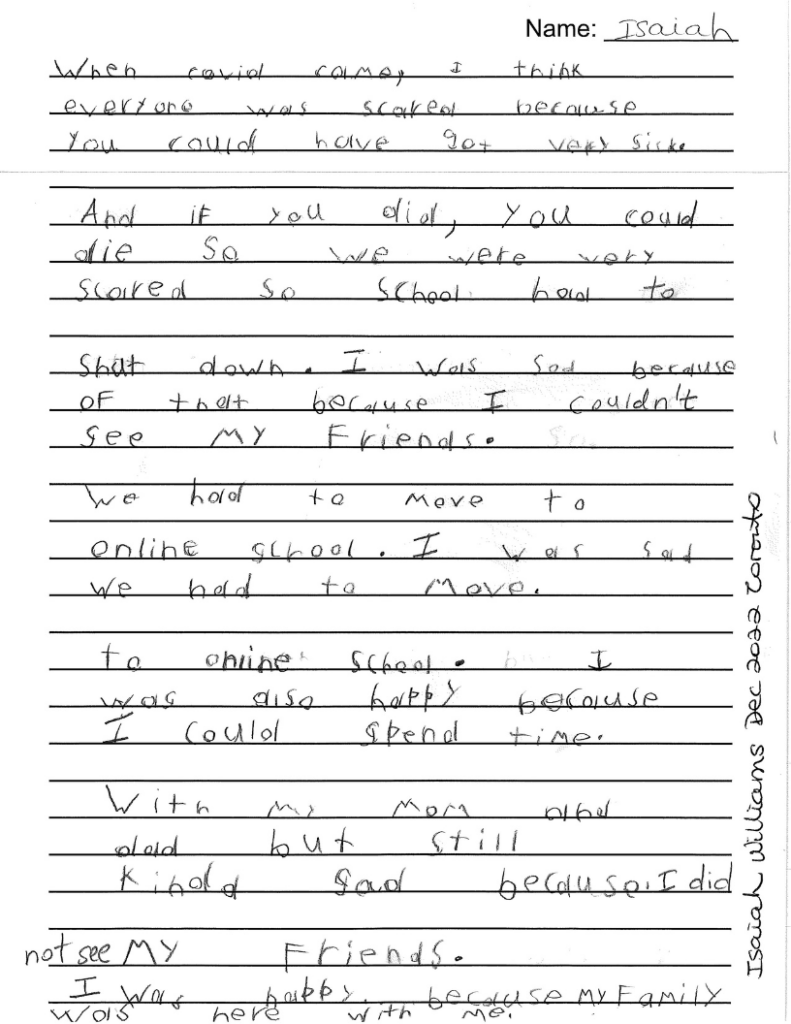 Name: Isaiah
When covid came, I think
everyone was scared because
you could have got very sick.
And if you did, you could
die so we were very
scared so school had to
shut down. I was sad because
of that because I couldn't
see my friends. So
we had to move to
online school. I was sad
we had to move.
to online school. I
was also happy because
I could spend time.
With my mom and
dad but still
kinda sad because. I did
not see my Friends.
I was happy. because my family
was here with me.
Isaiah Williams Dec 2022 Toronto